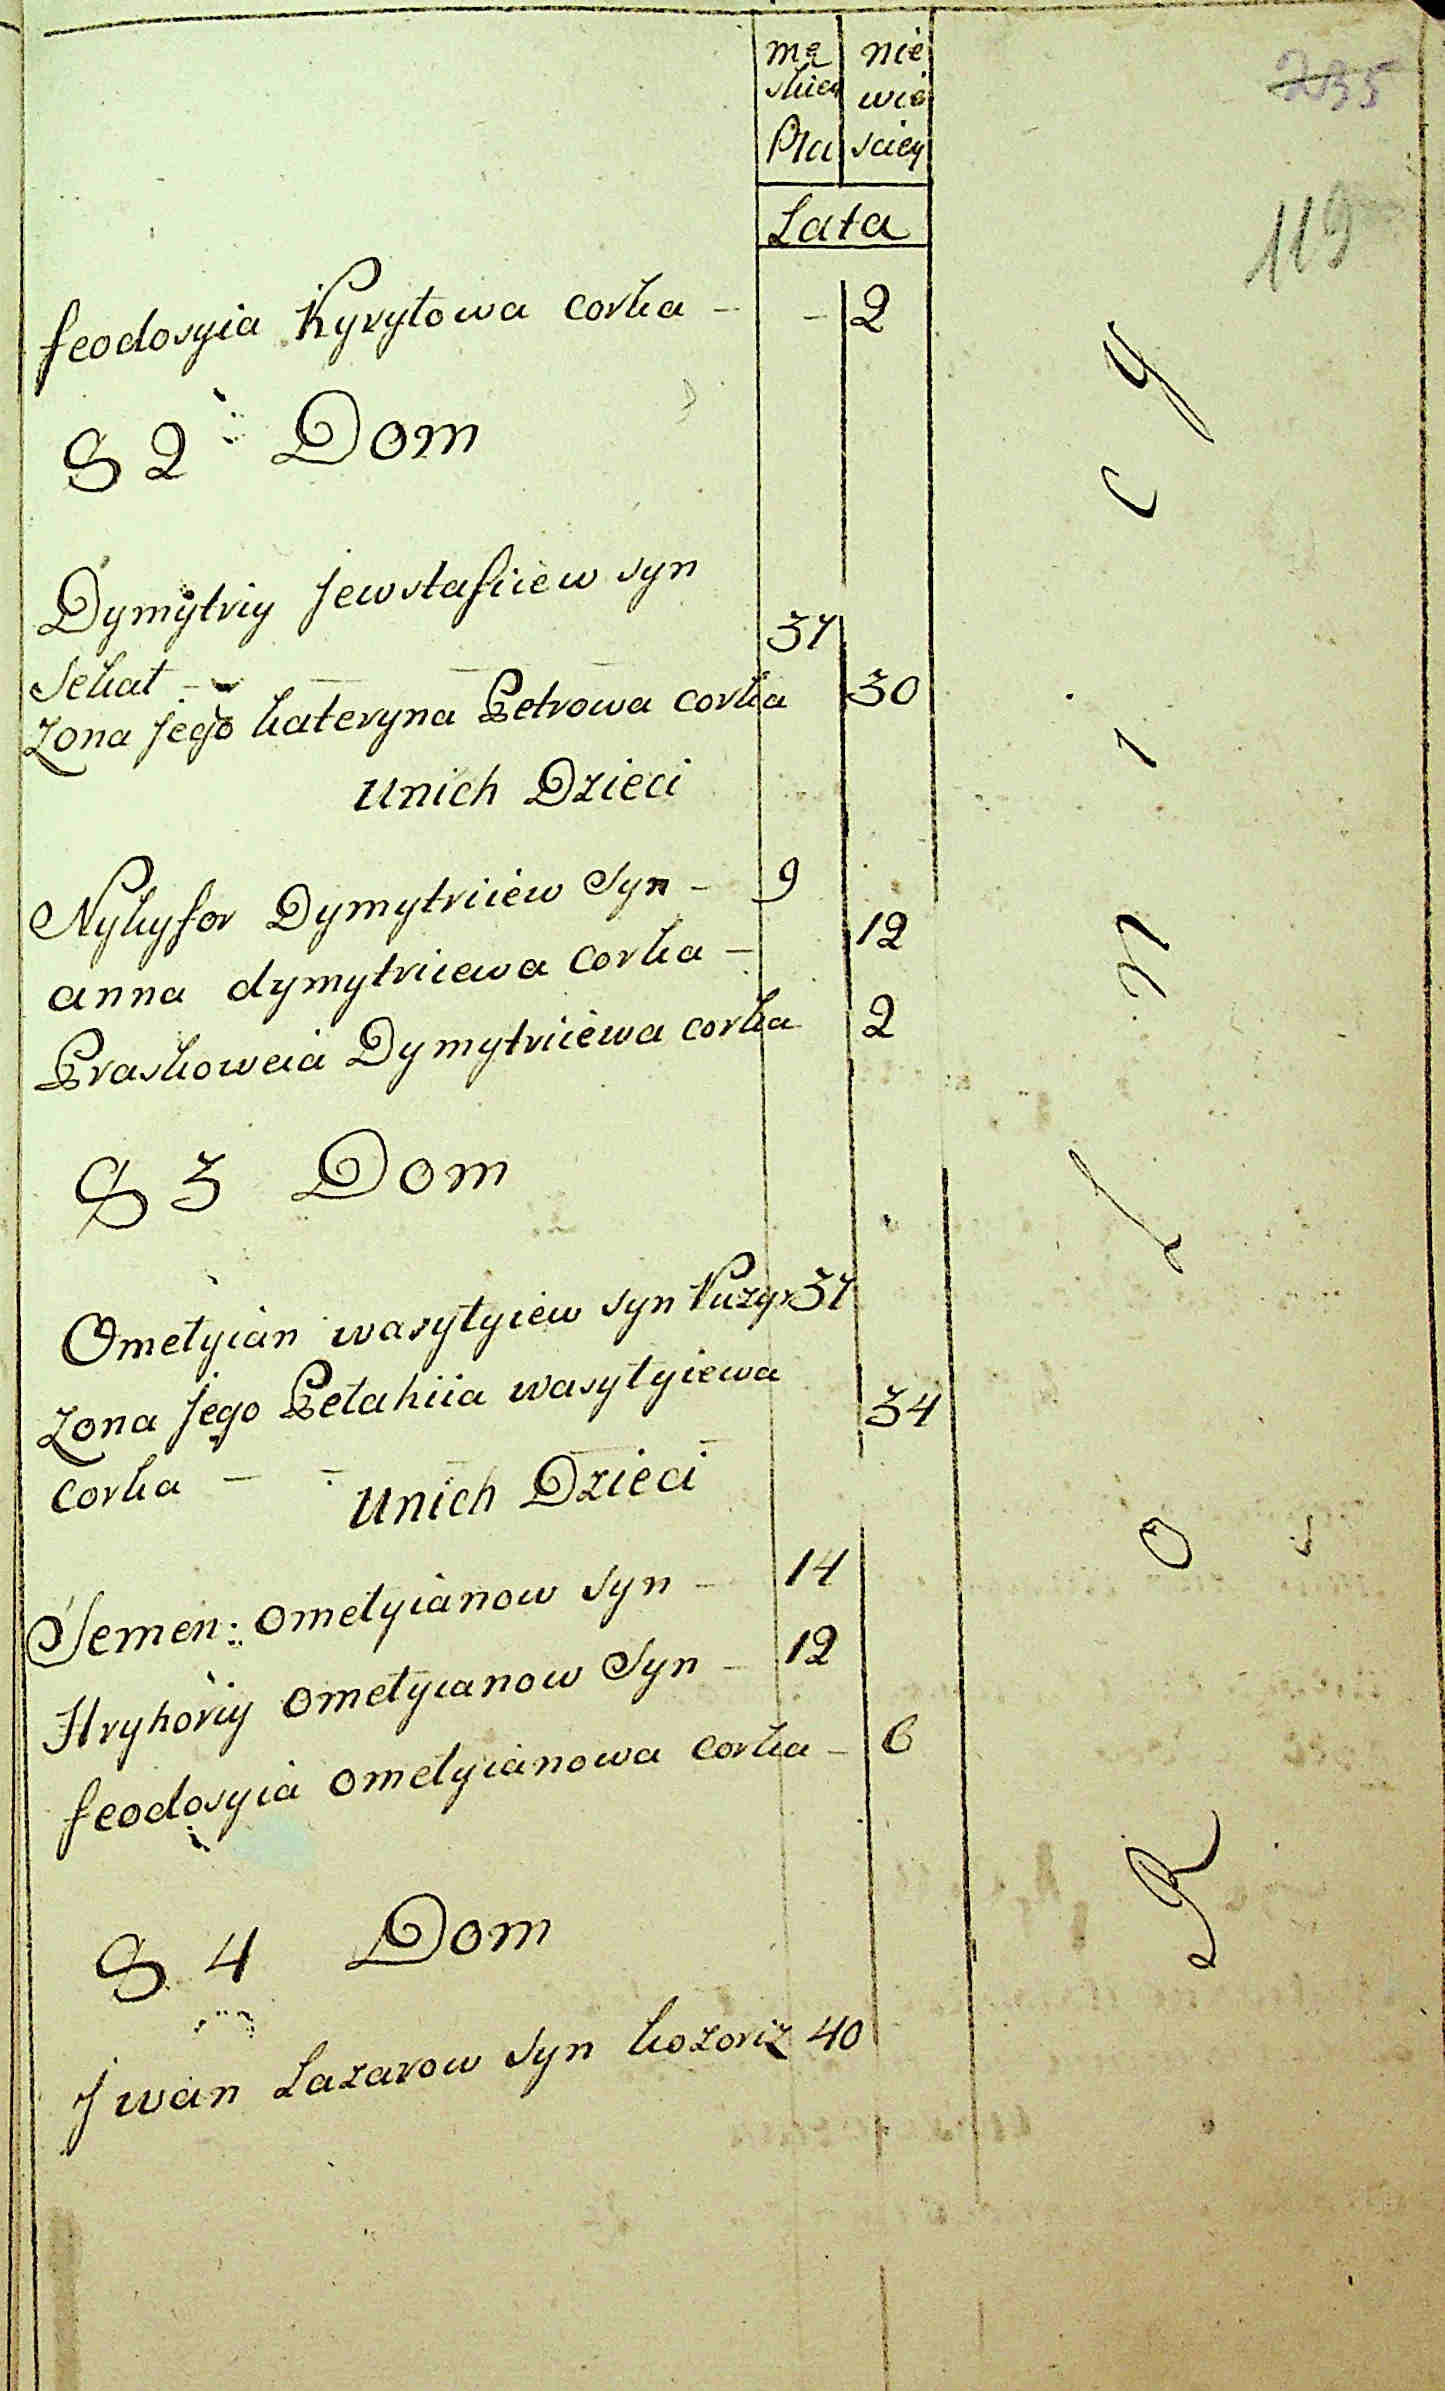 mę nie
skiey wie
Płci sciey
Lata
235
119
feodosyia Kyryłowa corka - - 2
S 2 Dom
Dymytriy Jewstafiiew syn
37
Sekał -
zona jego kateryna Petrowa corka 30
unich Dzieci
Nykyfor Dymytriiew Syn - 9
anna dymytriiewa corka - 12
Praskoweia Dymytriiewa corka 2
S 3 Dom
Omelyian wasylyiew syn Puzyr 37
zona jego Pelahiia wasylyiewa
34
corka -
unich Dzieci
Semen omelyianow syn - 14
Hryhoriy omelyianow Syn - 12
feodosyia omelyianowa corka - 6
S 4 Dom
Jwan Lazarow syn kozoriz 40
Rolnicy